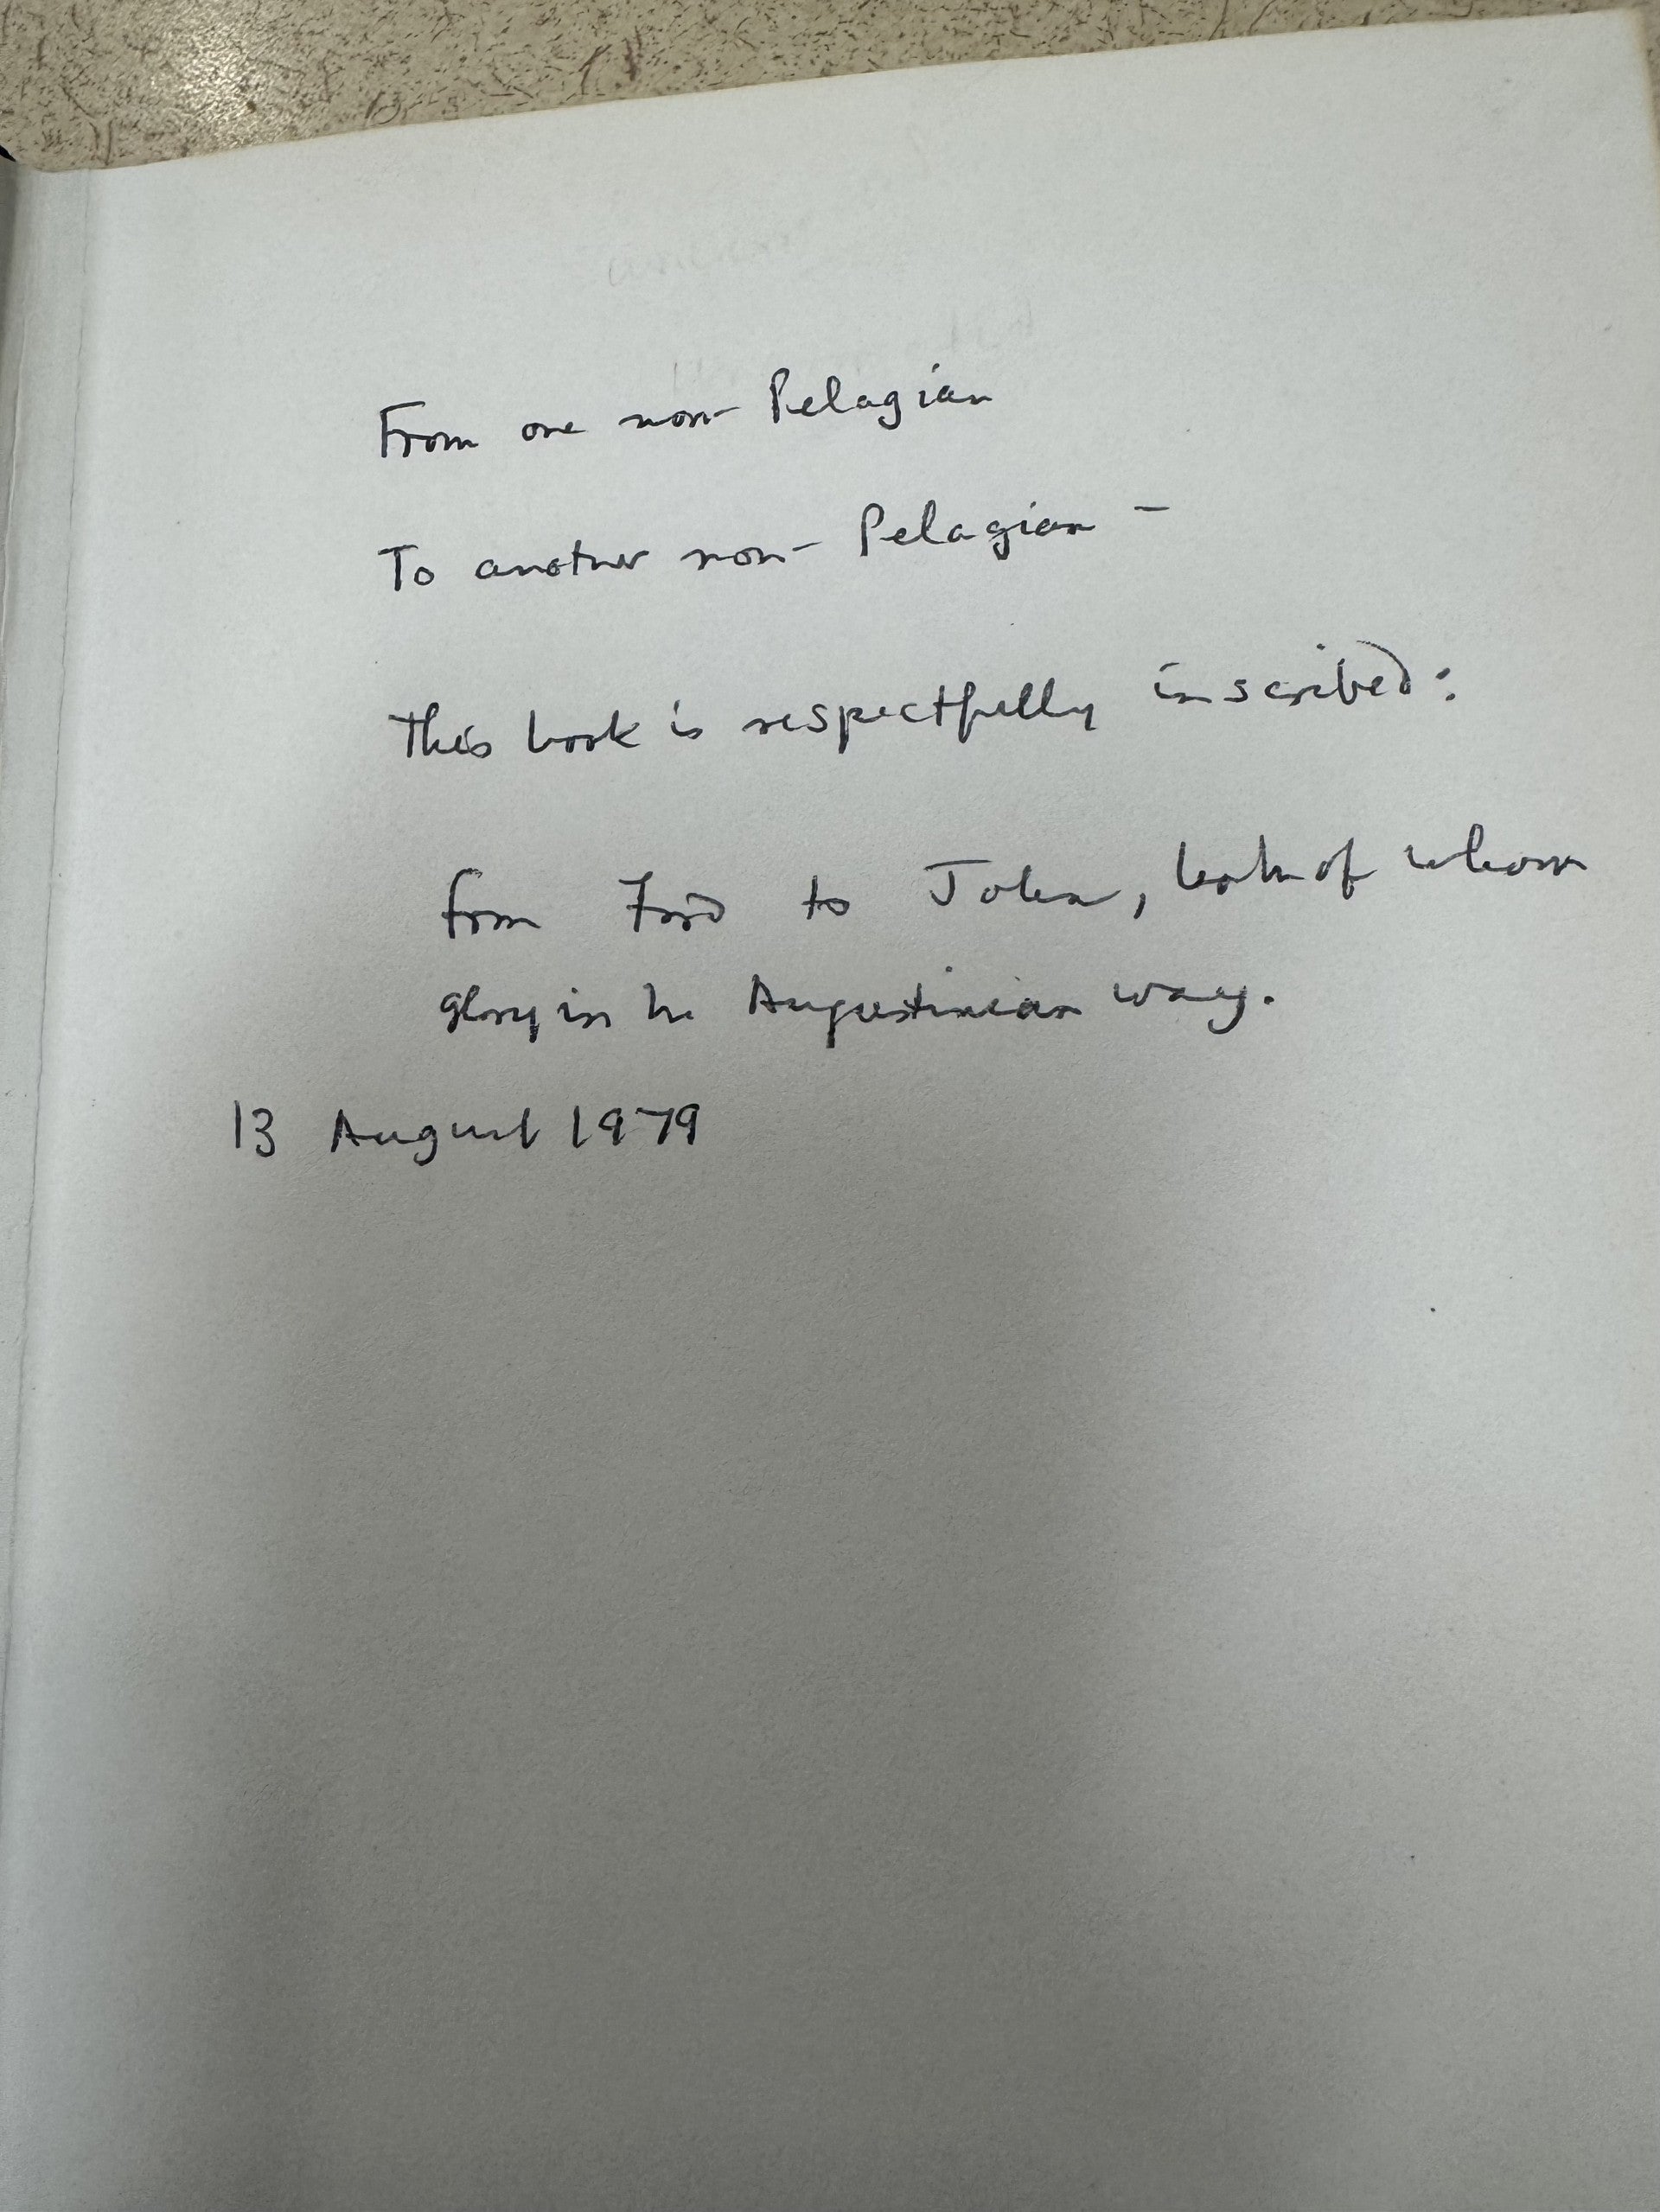 From one non-Pelagian
To another non-Pelagian -
This book is respectfully inscribed:
from Ford to John, both of whom
glory in the Augustinian way.
13 August 1979